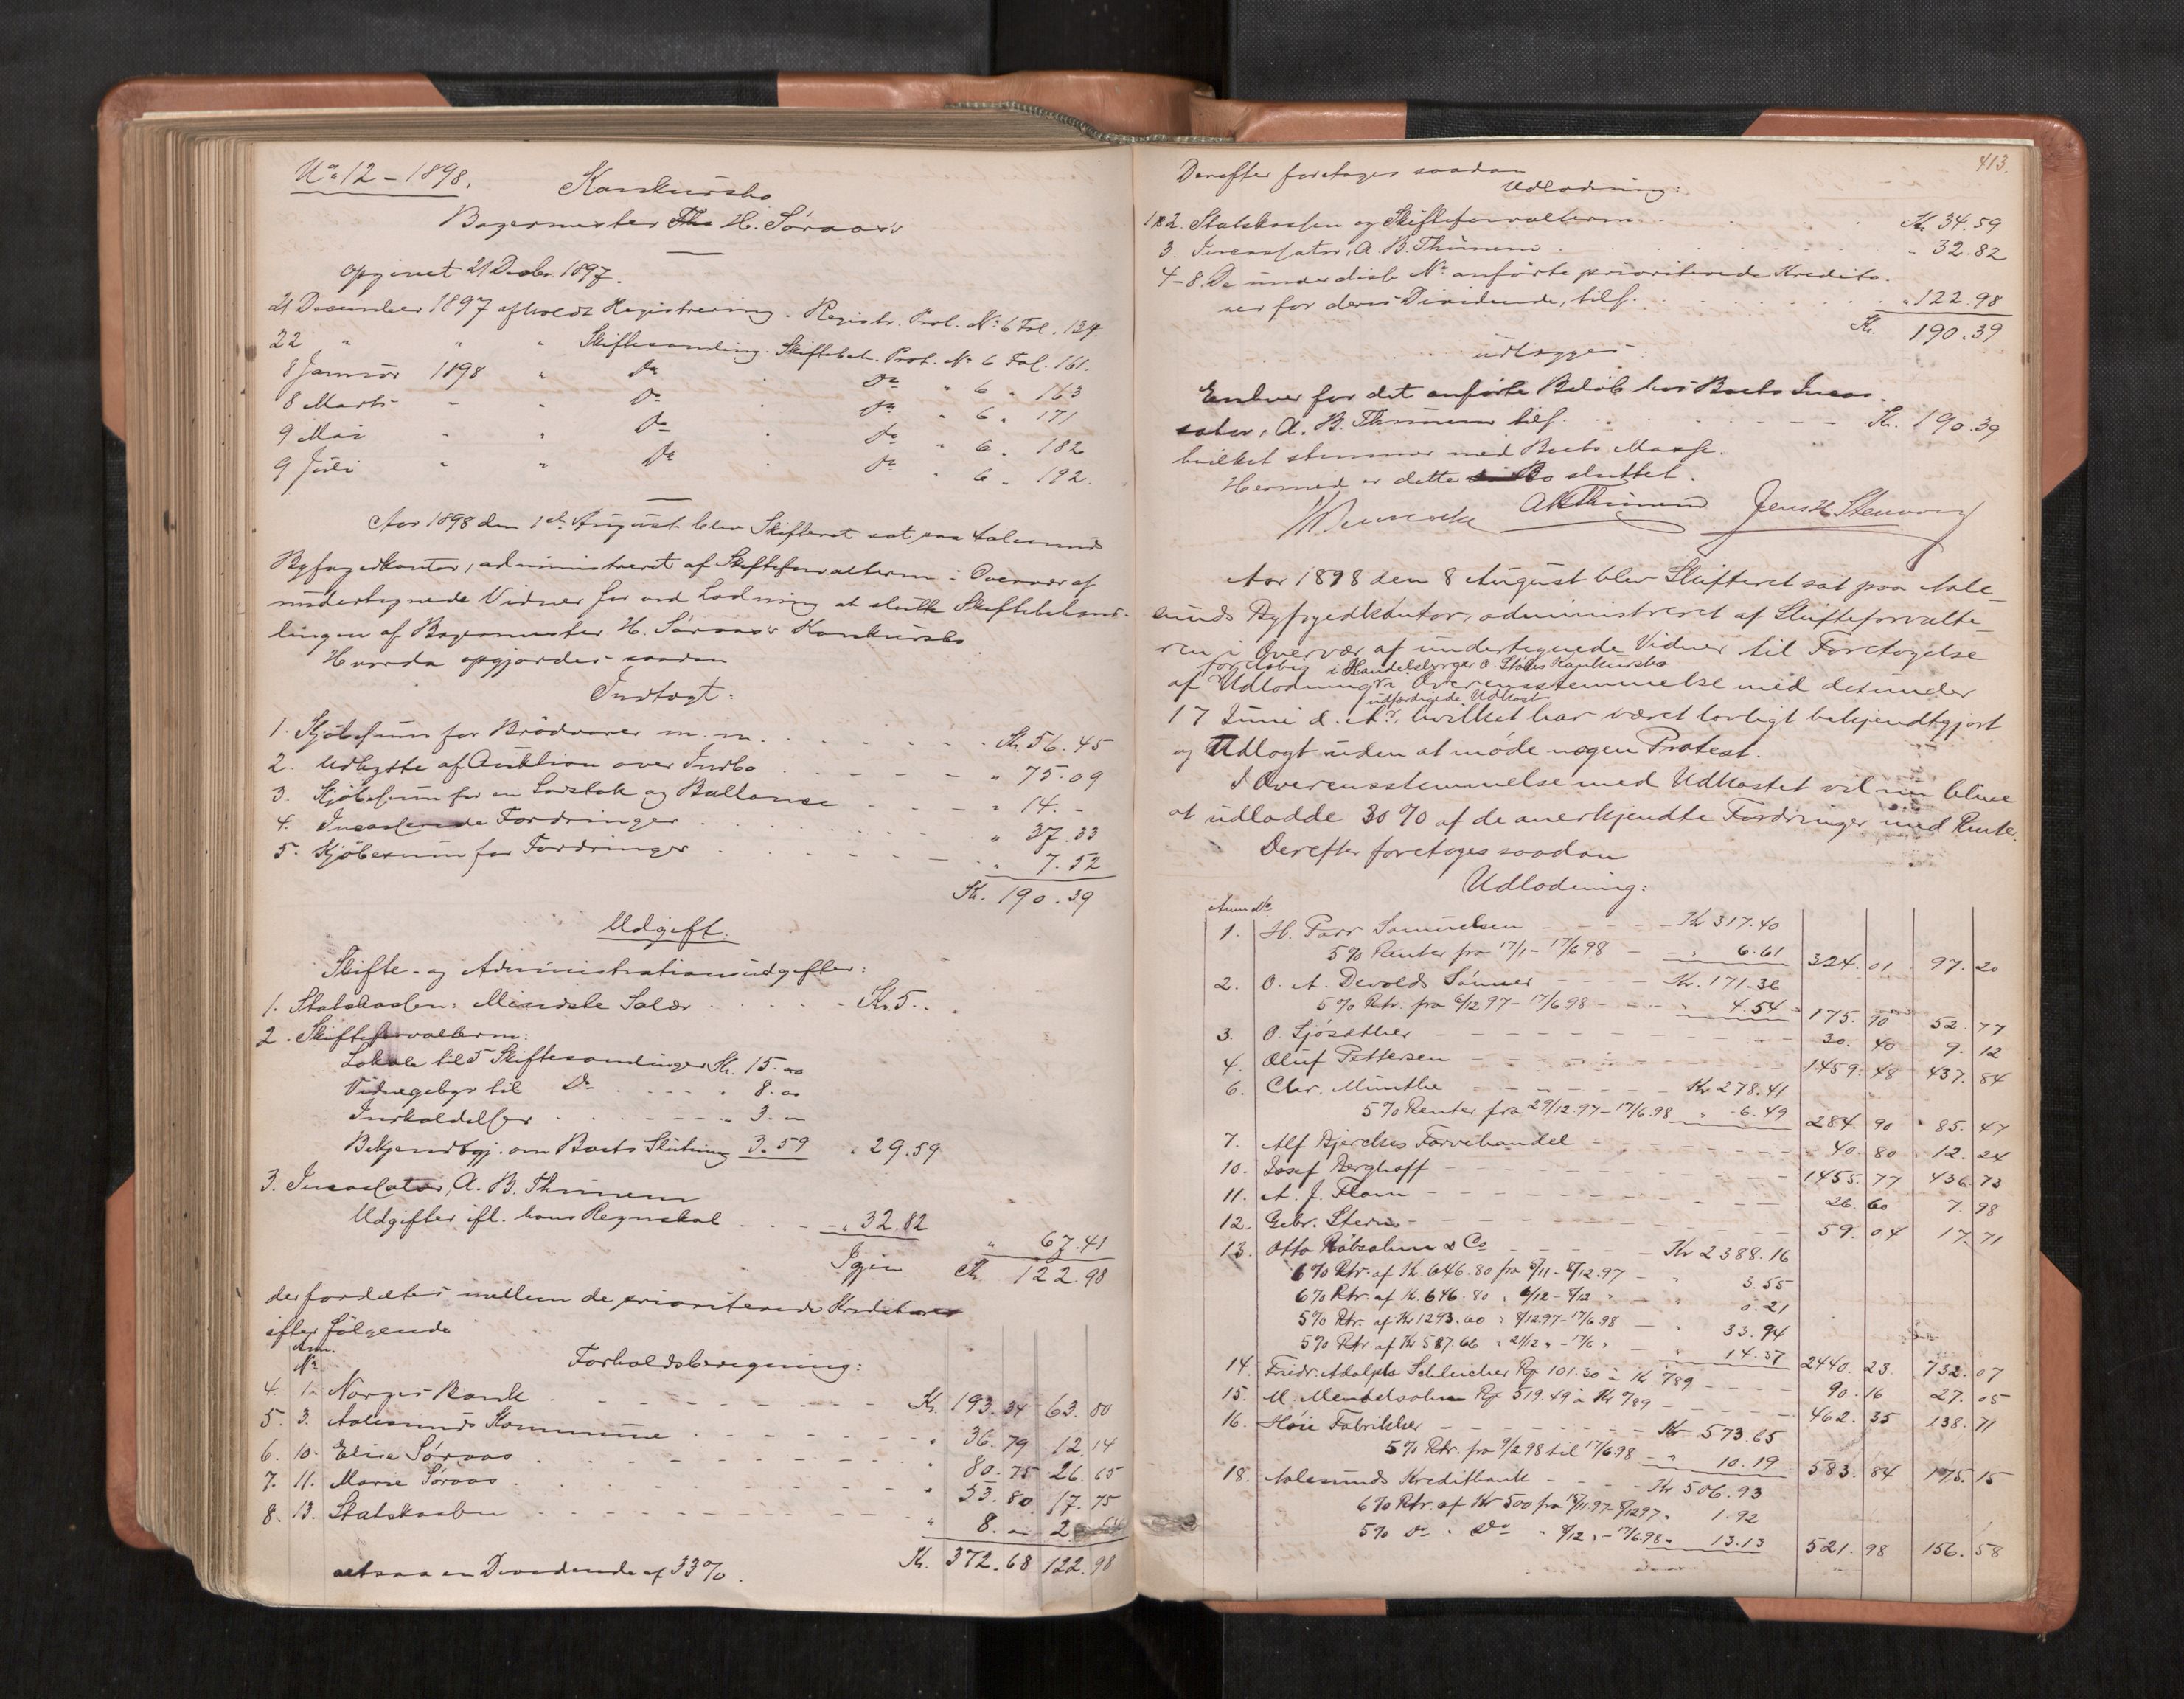 No 12 - 1898.
Konkursbo
Bagermester H. Søraas's
Opgivet 21 Decbr. 1897.
21 December 1897 afholdt Registrering. Registr. Prot. No 6 Fol. 139.
22 " " " Skiftesamling. Skiftebeh. Prot. No 6 Fol. 161.
8 Januar 1898 " Do " Do " 6 " 163
8 Marts " " Do " Do " 6 " 171
9 Mai " " Do " Do " 6 " 182
9 Juli " " Do " Do " 6 " 192.
Aar 1898 den 1ste August blev Skifteret sat paa Aalesunds
Byfogedkontor, administreret af Skifteforvalteren i Overvær af
undertegnede Vidner for ved Lodning at slutte Skiftebehand-
lingen af Bagermester H. Søraas's Konkursbo
Hvorda opgjordes saadan
Indtægt:
1. Kjøbesum for Brødvarer m. m. Kr. 56.45
2. Udbytte af Auktion over Indbo " 75.09
3. Kjøbesum for en og Ballance " 14. -
4. Incasserede Fordringer " 37.33
5. Kjøbesum for Fordringer " 7.52
Kr. 190.39
Udgift:
Skifte- og Administrationsudgifter:
1. Statskassen: Mindste Salær Kr. 5..
2. Skifteforvalteren:
Lokale til 5 Skiftesamlinger Kr. 15.00
Vidnegebyr til Do " 8.00
Indkaldelser " 3. -
Bekjendtgj. om Boets Slutning 3.59 " 29.59
3. Incassator, A. B. Thunem
Udgifter ifl. hans Regnskab " 32.82
" 67.41
Igjen Kr. 122.98
der fordeles mellem de prioriterede Kreditorer
efter følgende
Anm. No
Forholdsberegning:
4. 1. Norges Bank Kr. 193.34 63.80
5. 3. Aalesunds Kommune " 36.79 12.14
6. 10. Elise Søraas " 80.75 26.65
7. 11. Marie Søraas " 53.80 17.75
8. 13. Statskassen " 8. - 2.64
Kr. 372.68 122.98
altsaa en Dividende af 33%.
413.
Derefter foretages saadan
Udlodning:
1 & 2. Statskassen og Skifteforvalteren Kr. 34.59
3. Incassator, A. B. Thunem " 32.82
4-8. De under disse No anførte prioriterede Kredito-
rer for deres Dividende, tils. " 122.98
Kr. 190.39
udlægges:
Enhver for det anførte Beløb hos Boets Incas-
sator, A. B. Thunem tils. Kr. 190.39
hvilket stemmer med Boets Masse.
Hermed er dette Bo sluttet.
AB Thunem Jens H. Stenvaag
Aar 1898 den 8 August blev Skifteret sat paa Aale-
sunds Byfogedkontor, administreret af Skifteforvalte-
ren i Overvær af undertegnede Vidner til Foretagelse
foreløbig i Handelsborger O. Konkursbo
af Udlodning i Overensstemmelse med det under
udfærdigede Udkast
17 Juni d. A., hvilket har været lovligt bekjendtgjort
og Udlagt uden at møde nogen Protest.
I Overensstemmelse med Udkastet vil nu blive
at udlodde 30% af de anerkjendte Fordringer med Rente.
Derefter foretages saadan
Udlodning:
Anm. No
1. H. Parr Samuelsen Kr 317.40
5% Renter fra 17/1 - 17/6 98 " 6.61 324.01 97.20
2. O. A. Devolds Sønner Kr. 171.36
5% Rtr. fra 6/12 97 - 17/6 98 " 4.54 175.90 52.77
3. O. Sjøsæther 30.40 9.12
4. Oluf Pettersen 1459.48 437.84
6. Chr. Munthe Kr 278.41
5% Renter fra 29/12.97 - 17/6.98 " 6.49 284.90 85.47
7. Alf Bjerckes Farvehandel 40.80 12.24
10. Josef Berghoff 1455.77 436.73
11. A. J. Flam 26.60 7.98
12. Gebr. Stern 59.04 17.71
13. Otto Røbsahm & Co Kr 2388.16
6% Rtr. af Kr. 646.80 fra 5/11 - 8/12.97 " 3.55
6% Rtr. af Kr. 646.80 " 6/12 - 8/12 " " 0.21
5% Rtr. af Kr 1293.60 " 8/12 97 - 17/6 98 " 33.94
5% Rtr. af Kr 587.66 " 21/12 " - 17/6 " " 14.37 2440.23 732.07
14. Friedr. Adolph Schleicher 101.30 à Kr 789 90.16 27.05
15. M. Mendelsohn 519.49 à Kr 789 462.35 138.71
16. Høie Fabrikker Kr 573.65
5% Rtr. fra 9/2 98 til 17/6 98 " 10.19 583.84 175.15
18. Aalesunds Kreditbank Kr 506.93
6% Rtr. af Kr 500 fra 15/11 97 - 8/12 97 " 1.92
5% Do " Do " 8/12 " - 17/6.98 " 13.13 521.98 156.58